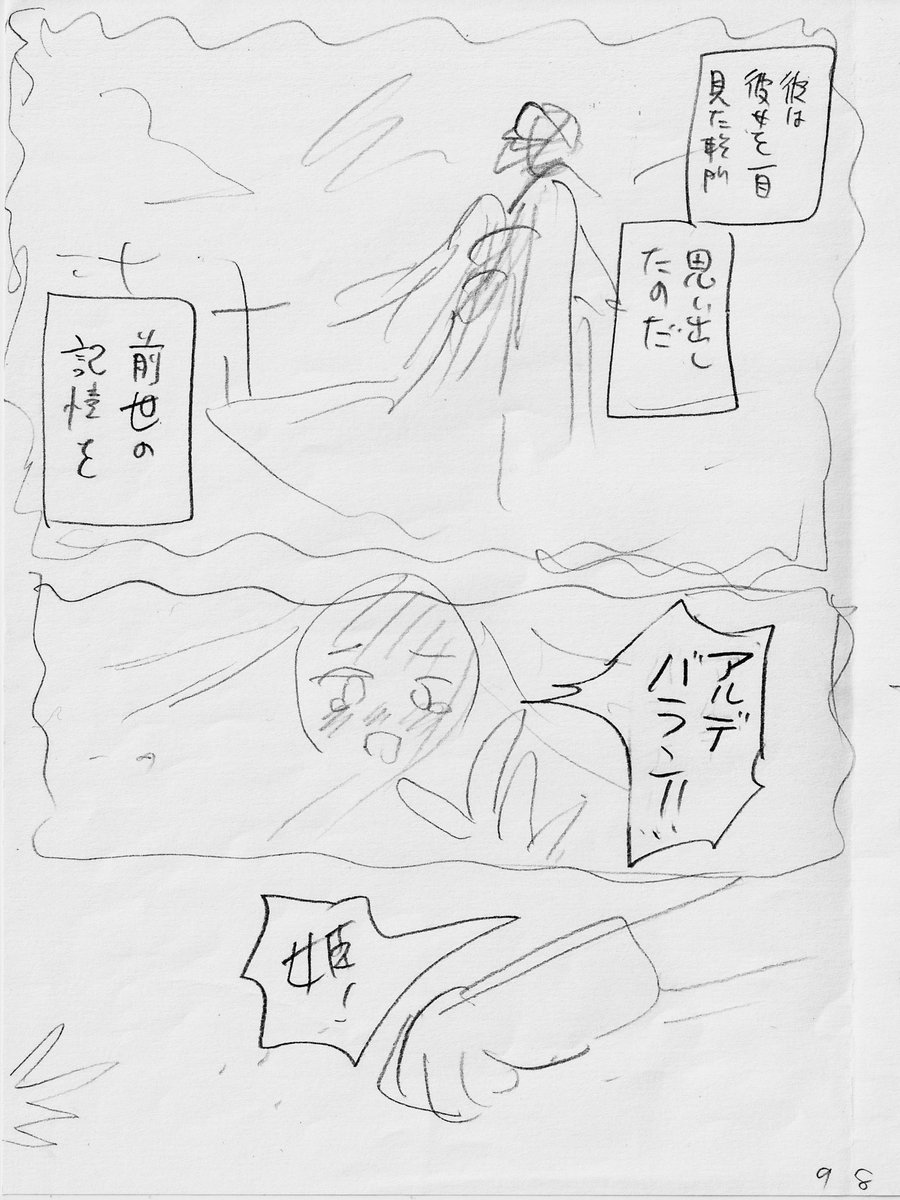 彼は
彼女を一目
見た瞬間
思い出し
たのだ
前世の
記憶を
アルデ
バラン!!
姫!
98